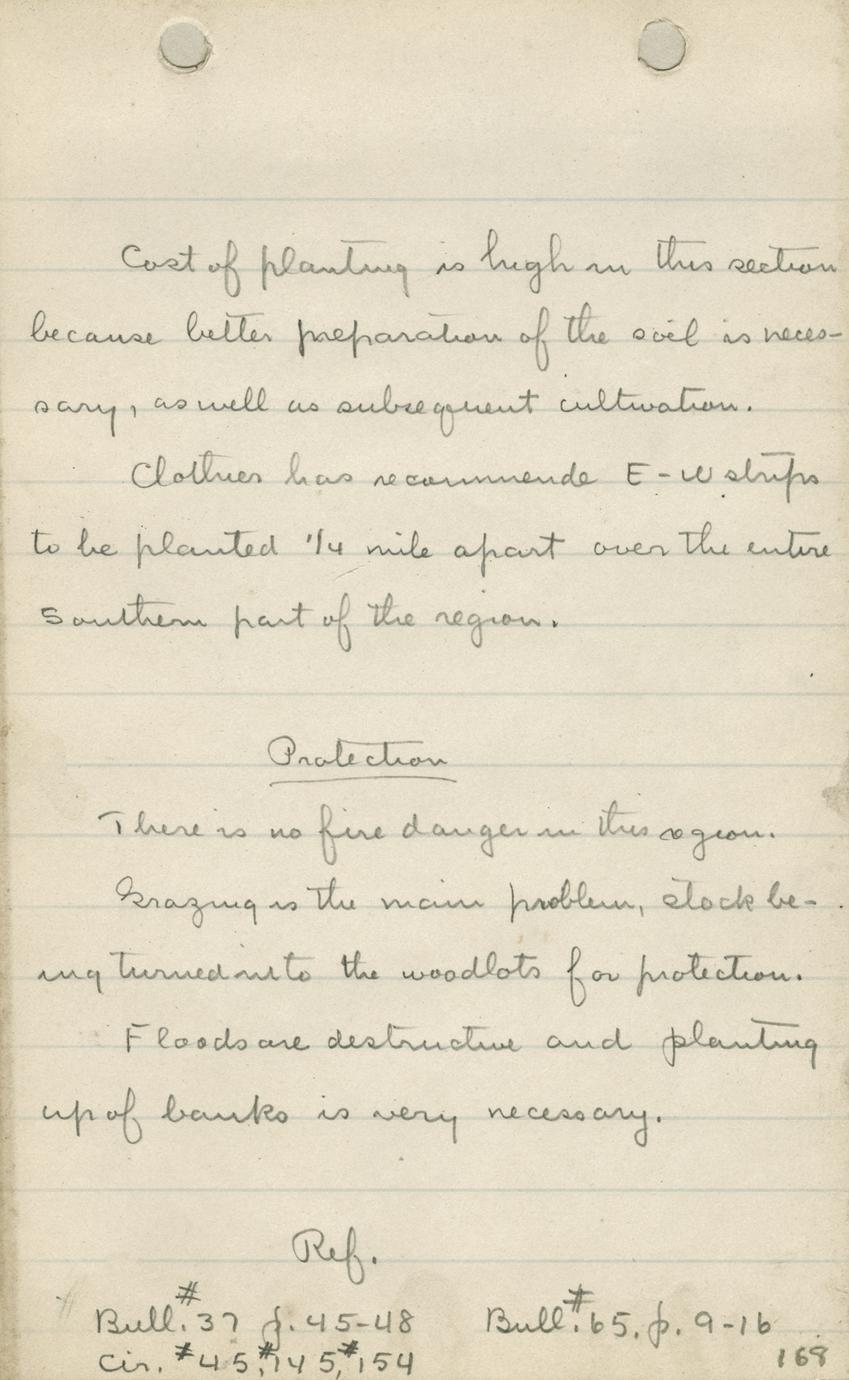 Cost of planting is high in this section
because better preparation of the soil is neces-
sary, as well as subsequent cultivation.
Clothier has recommende E-W strips
to be planted 1/4 mile apart over the entire
Southern part of the region.
Protection
There is no fire danger in this region.
Grazing is the main problem, stock be-
ing turned into the woodlots for protection.
Floods are destructive and planting
up of banks is very necessary.
Ref.
Bull. #37 p. 45-48 Bull. #65, p. 9-16
Cir. #45, #145, #154
168